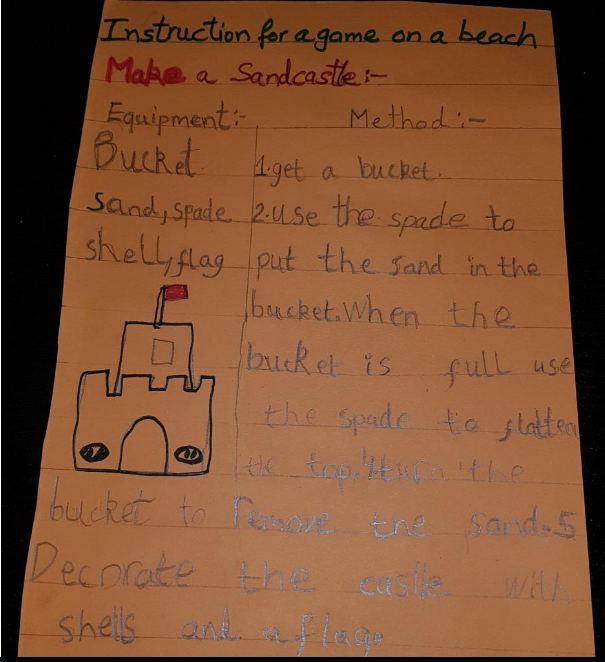 Instruction for a game on a beach
Make a Sandcastle:-
Equipment:-
Bucket
sand, spade
shell, flag
Method:-
1.get a bucket.
2.use the spade to
put the sand in the
bucket.When the
bucket is full use
the spade to flatten
the top.4turn the
bucket to remove the sand.5
Decorate the castle with
shells and a flag.